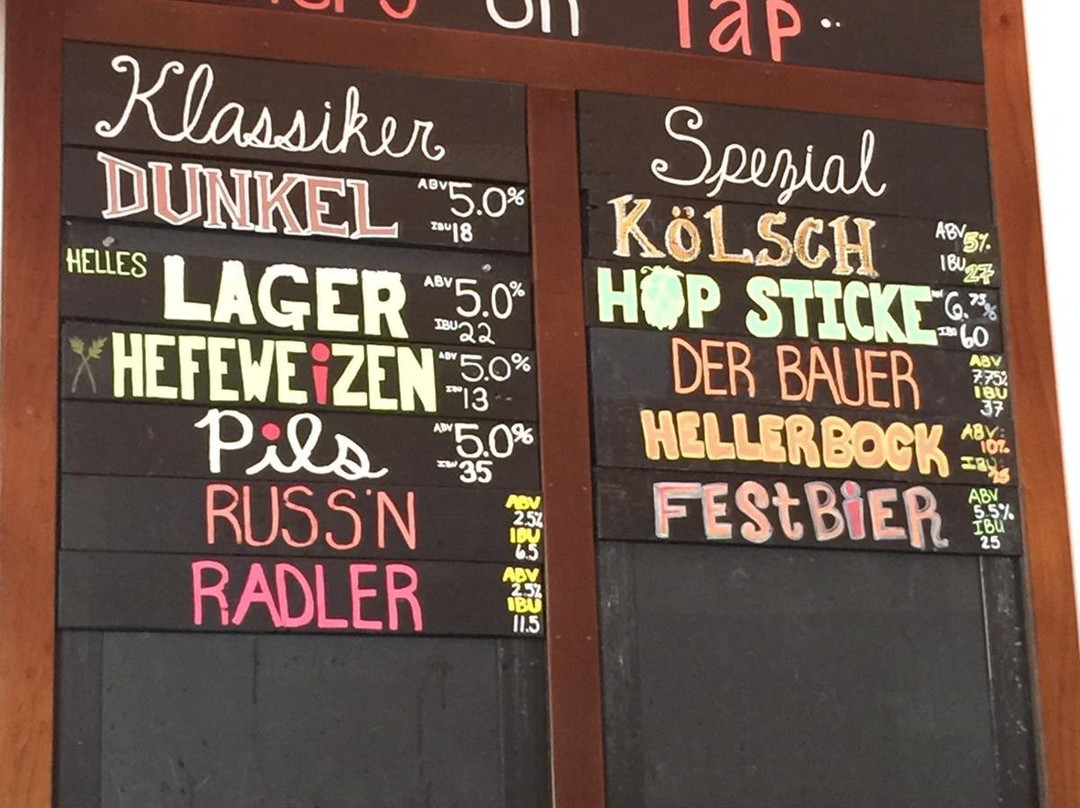 on Tap..
Klassiker
DUNKEL ABV 5.0%
IBU 18
HELLES LAGER ABV 5.0%
IBU 22
HEFEWEiZEN ABV 5.0%
IBU 13
Pils ABV 5.0%
IBU 35
RUSS'N ABV
2.5%
IBU
6.5
RADLER ABV
2.5%
IBU
11.5
Spezial
KöLSCH ABV 5%
IBU 27
HOP STICKE 6.75%
IBU 60
DER BAUER ABV
7.75%
IBU
37
HELLERBOCK ABV:
10%
IBU:
FEStBiER ABV
5.5%
IBU
25